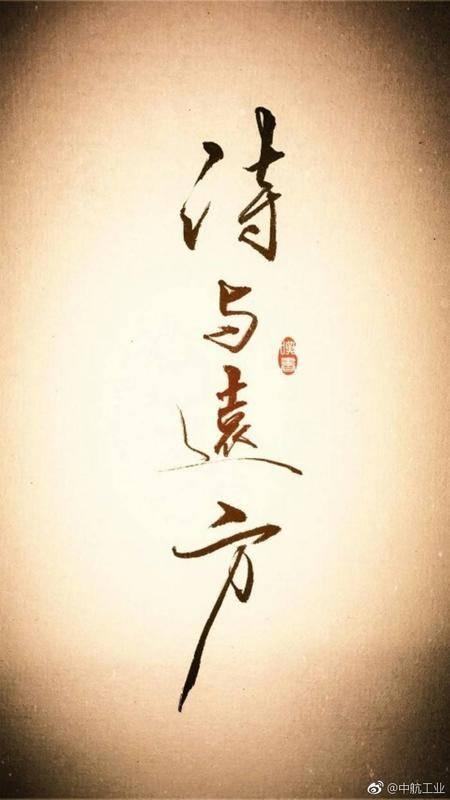 诗与遠方
@中航工业